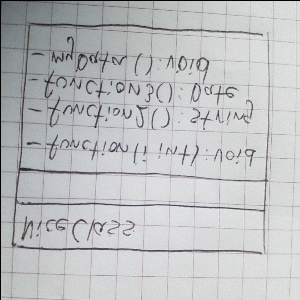 NiceClass
- function(i int): void
- function2(): String
- function3(): Date
- (): void